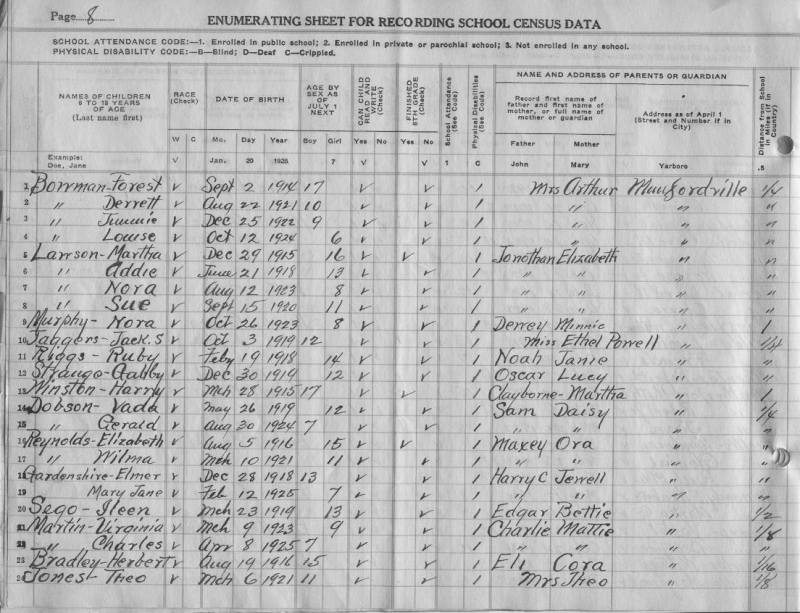 Page 8
ENUMERATING SHEET FOR RECORDING SCHOOL CENSUS DATA
SCHOOL ATTENDANCE CODE:—1. Enrolled in public school; 2. Enrolled in private or parochial school; 3. Not enrolled in any school.
PHYSICAL DISABILITY CODE:—B—Blind; D—Deaf C—Crippled.
NAMES OF CHILDREN 6 TO 18 YEARS OF AGE (Last name first) RACE (Check) W C DATE OF BIRTH Mo. Day Year AGE BY SEX AS OF JULY 1 NEXT Boy Girl CAN CHILD READ AND WRITE (Check) Yes No FINISHED 8TH GRADE (Check) Yes No School Attendance (See Code) Physical Disabilities (See Code) NAME AND ADDRESS OF PARENTS OR GUARDIAN Record first name of father and first name of mother, or full name of mother or guardian Father Mother Address as of April 1 (Street and Number if in City) Distance from School in Miles (if in Country)
Example: Doe, Jane V Jan. 20 1925 7 V V 1 C John Mary Yarboro .5
1 Bowman-Forest V Sept 2 1914 17 V V 1 Mrs Arthur Munfordville 1/4
2 " Derrett V Aug 22 1921 10 V V 1 " " "
3 " Jimmie V Dec 25 1922 9 V V 1 " " "
4 " Louise V Oct 12 1924 6 V V 1 " " "
5 Lawson-Martha V Dec 29 1915 16 V V 1 Jonothan Elizabeth " "
6 " Addie V June 21 1918 13 V V 1 " " " "
7 " Nora V Aug 12 1923 8 V V 1 " " " "
8 " Sue V Sept 15 1920 11 V V 1 " " " "
9 Murphy-Nora V Oct 26 1923 8 V V 1 Dewey Minnie " 1
10 Jaggers-Jack.S V Oct 3 1919 12 V V 1 Miss Ethel Powell " 1/4
11 Riggs-Ruby V Feby 19 1918 14 V V 1 Noah Janie " "
12 V Dec 30 1919 12 V V 1 Oscar Lucy " "
13 Winston-Harry V Mch 28 1915 17 V V 1 Clayborne-Martha " 1
14 Dobson-Vada V May 26 1919 12 V V 1 Sam Daisy " 1/4
15 " Gerald V Aug 30 1924 7 V V 1 " " " "
16 Reynolds-Elizabeth V Aug 5 1916 15 V V 1 Maxey Ora " "
17 " Wilma V Mch 10 1921 11 V V 1 " " " "
18 Gardenshire-Elmer V Dec 28 1918 13 V V 1 Harry C Jewell " "
19 Mary Jane V Feb 12 1925 7 V V 1 " " " "
20 Sego-Ileen V Mch 23 1919 13 V V 1 Edgar Bettie " 1/2
21 Martin-Virginia V Mch 9 1923 9 V V 1 Charlie Mattie " 1/8
22 " Charles V Apr 8 1925 7 V V 1 " " " "
23 Bradley-Herbert V Aug 19 1916 15 V V 1 Eli Cora " 1/16
24 Jones-Theo V Mch 6 1921 11 V V 1 Mrs Theo " 1/8